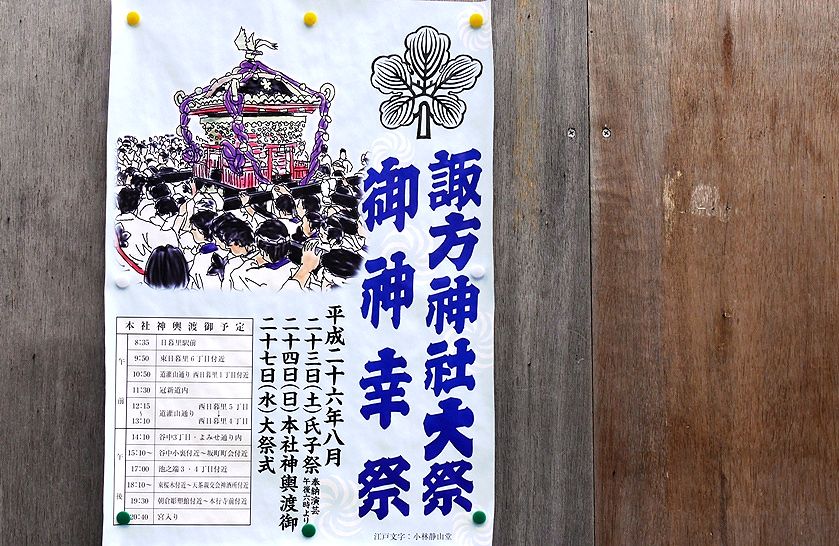 諏方神社大祭
御神幸祭
平成二十六年八月
二十三日(土)氏子祭 奉納演芸 午後六時より
二十四日(日)本社神輿渡御
二十七日(水)大祭式
本社神輿渡御予定
午前
8:35 日暮里駅前
9:50 東日暮里6丁目付近
10:50 道灌山通り 西日暮里1丁目付近
11:30 冠新道内
12:15~13:10 道灌山通り 西日暮里5丁目 西日暮里4丁目
午後
14:10 谷中3丁目・よみせ通り内
15:10~ 谷中小裏付近~坂町町会付近
17:00 池之端3・4丁目付近
18:10~
19:30 朝倉彫塑館付近~本行寺前付近
20:40 宮入り
江戸文字:小林静山堂